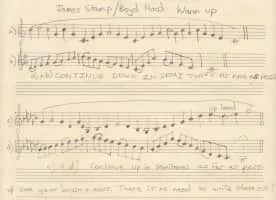 James Stamp/Boyd Hood Warm up
a)
b)
a)+b) CONTINUE DOWN IN SEMITONES AS FAR AS POSS
c)
up hand
d)
c)+d) Continue up in semitones as far as poss.
use your brain & ears. There is no need to write these out